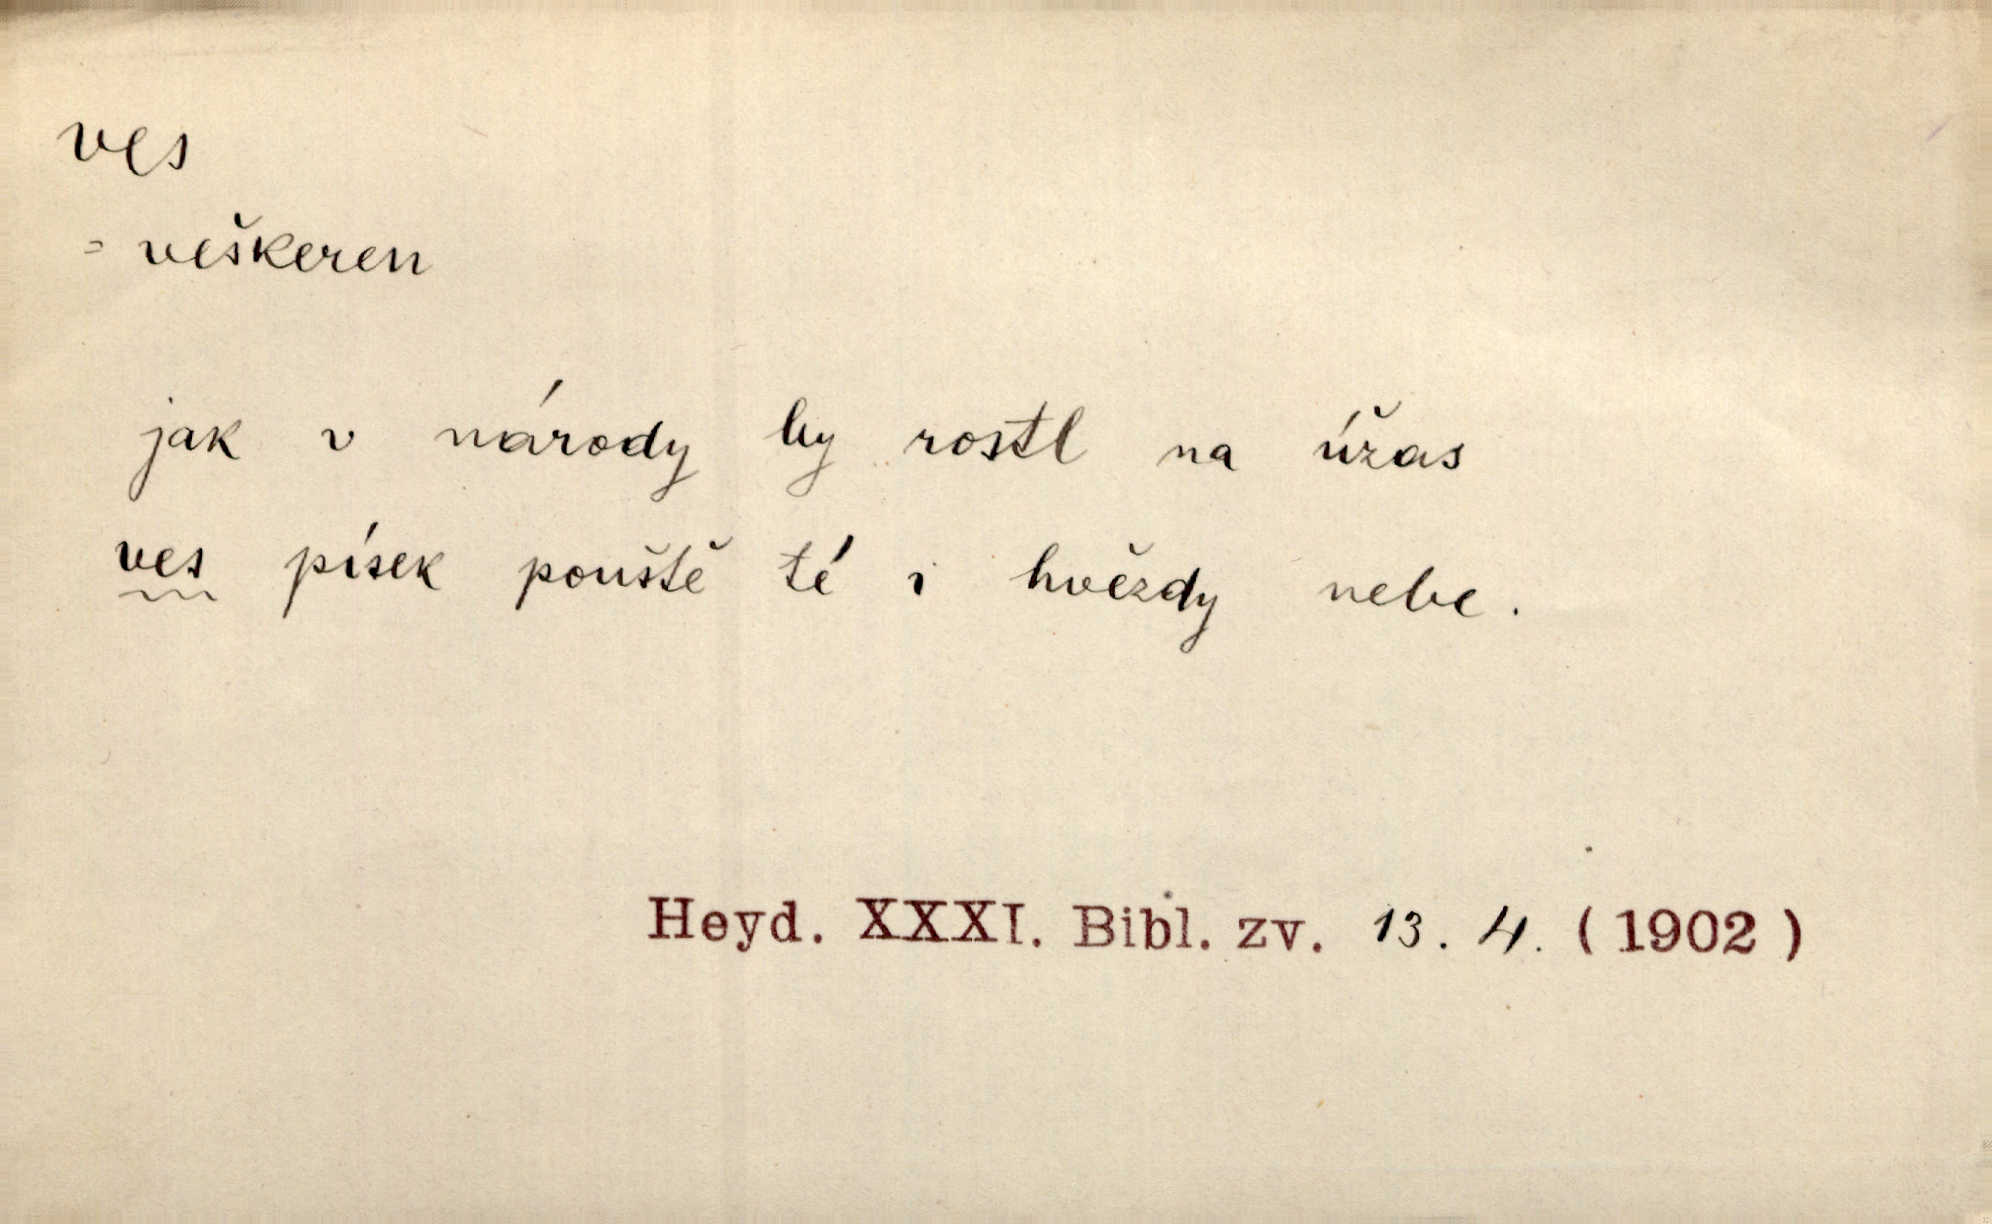 ves
= veškeren
jak v národy by rostl na úžas
ves písek pouště té i hvězdy nebe.
Heyd. XXXI. Bibl. zv. 13. 4. (1902)